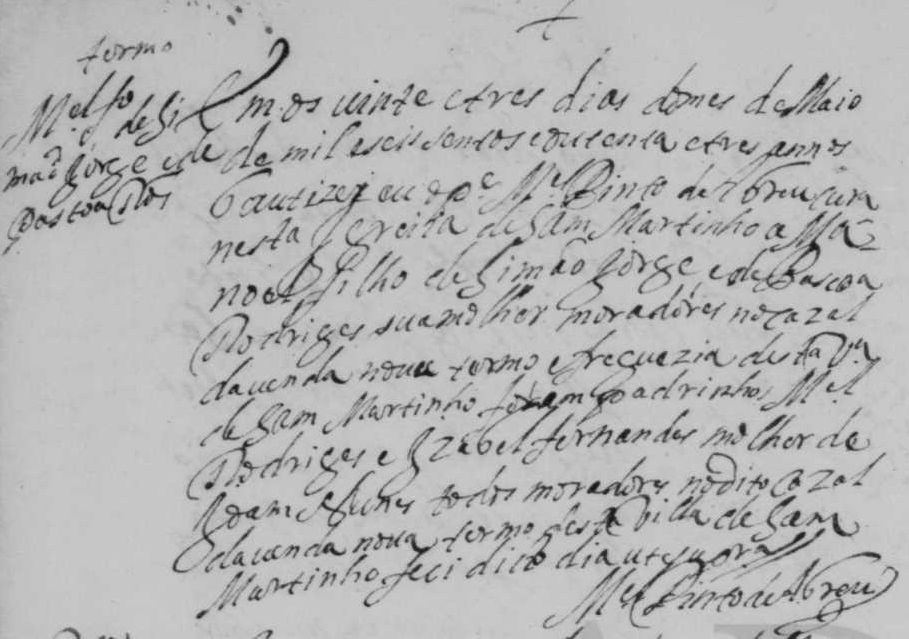 termo
M.el fo de Si
mão Jorge e de
Pascoa Roīs
Em os uinte e tres dias do mes de Maio
de mil e seis sentos e outenta e tres annos
bautizej eu o p.e M.el Pinto de Abreu cura
nesta Igreija de Sam Martinho a Ma=
noel filho de Simão Jorge e de Pascoa
Rodriges sua molher moradores no cazal
da uenda noua termo e freguezia desta V.a
de Sam Martinho foram padrinhos M.el
Rodriges e Izabel fernandes molher de
Joam todos moradores no dito cazal
da uenda noua termo desta Villa de Sam
Martinho feci dito dia ut supra
M.el Pinto de Abreu